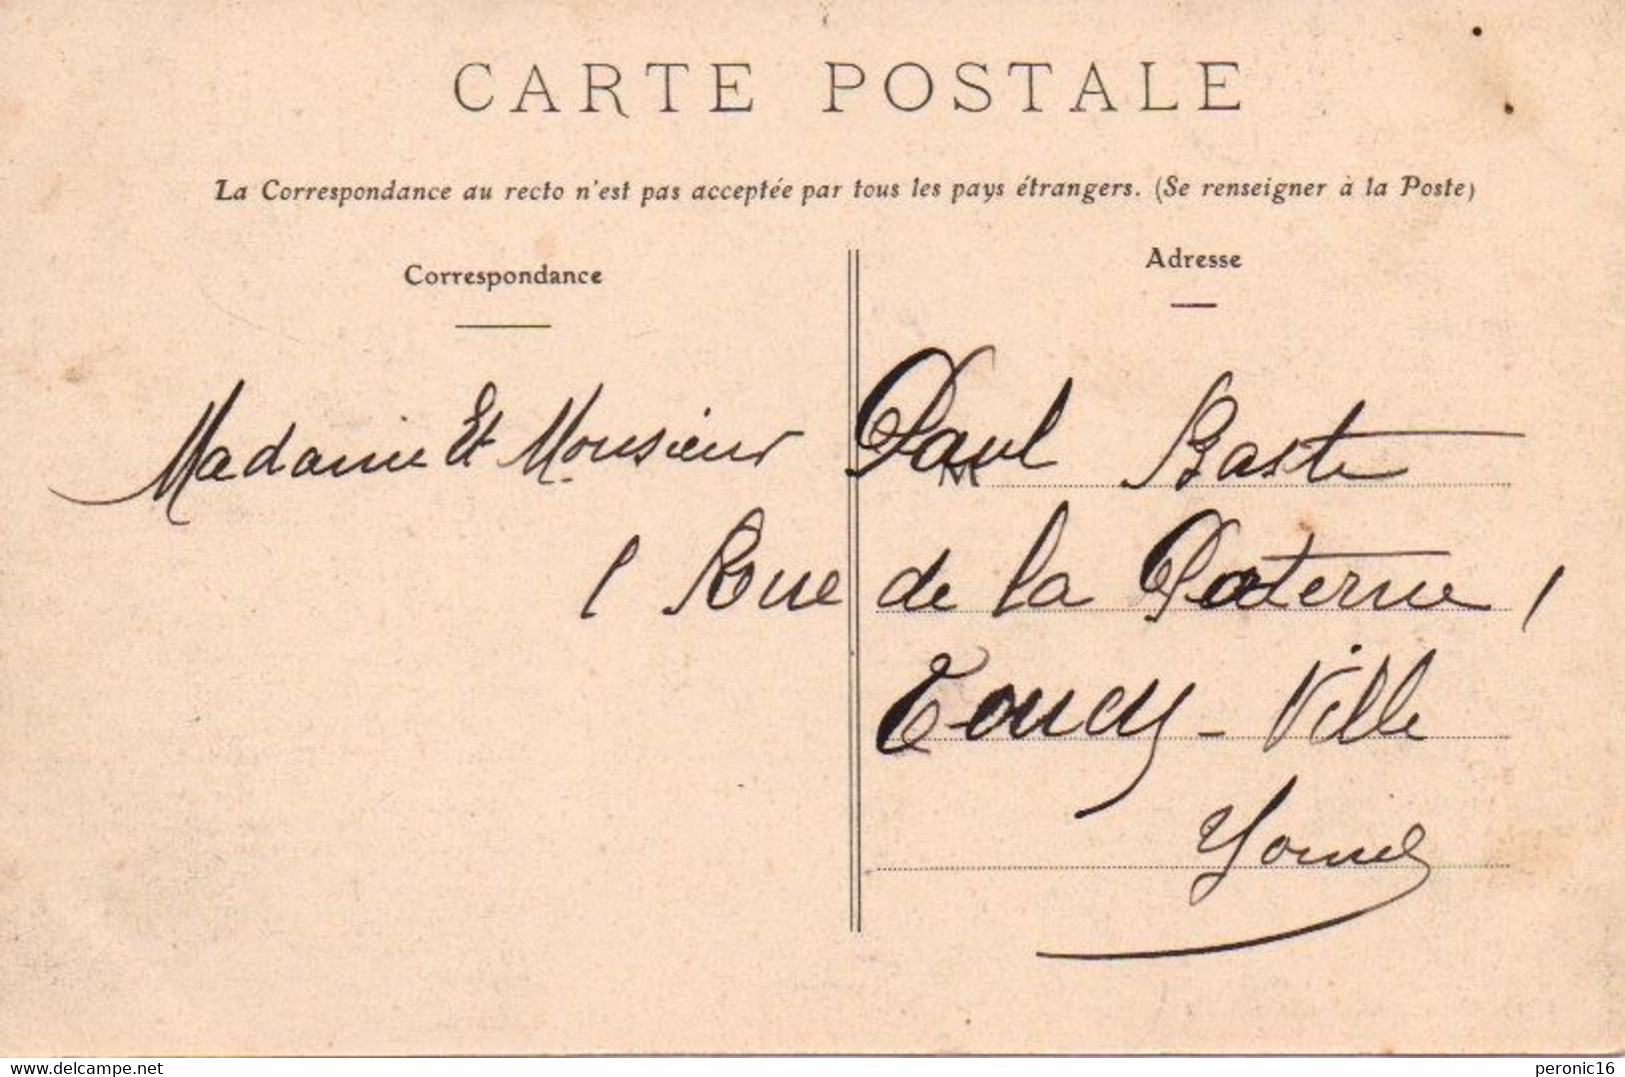 CARTE POSTALE
La Correspondance au recto n'est pas acceptée par tous les pays étrangers. (Se renseigner à la Poste)
Correspondance
Adresse
Madame Et Monsieur Paul Baste
M
( Rue de la Poterne )
Toucy - Ville
Yonne
delcampe.net
peronic16